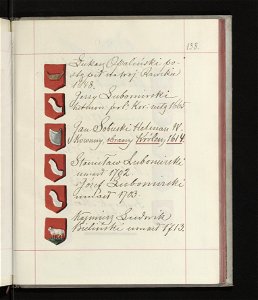 138.
Łukasz Opaliński po-
1648.
Jerzy Lubomirski
Jan Sobieski Hetman W.
Koronny obrany Królem 1614.
Stanisław Lubomirski
umarł 1702
Józef Lubomirski
umarł 1703
Kazimierz Ludwik
Bieliński umarł 1713.